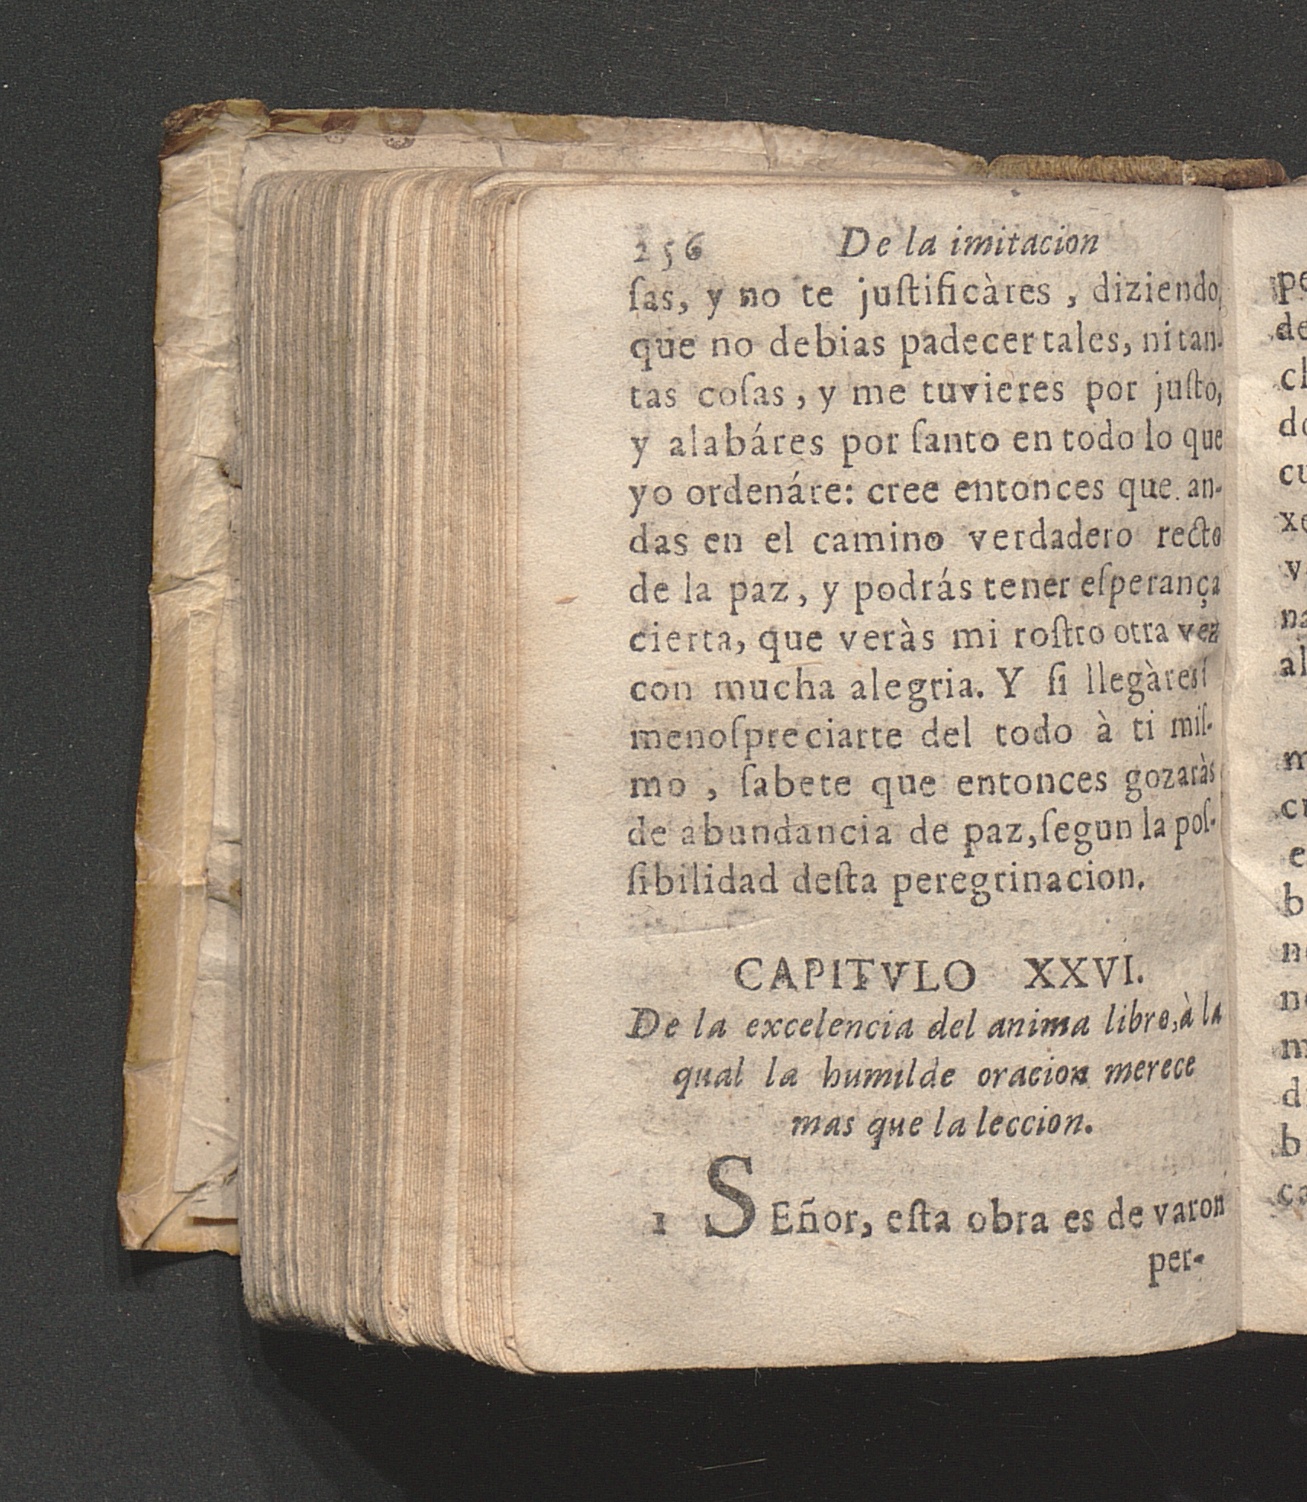 256 De la imitacion
ſas, y no te juſtificàres, diziendo,
que no debias padecer tales, ni tan-
tas coſas, y me tuvieres por juſto,
y alabáres por ſanto en todo lo que
yo ordenáre: cree entonces que an-
das en el camino verdadero recto
de la paz, y podrás tener eſperança
cierta, que veràs mi roſtro otra vez
con mucha alegria. Y ſi llegàres i
menoſpreciarte del todo à ti miſ-
mo, ſabete que entonces gozaràs
de abundancia de paz, ſegun la poſ-
ſibilidad deſta peregrinacion.
CAPITVLO XXVI.
De la excelencia del anima libre, à la
qual la humilde oracion merece
mas que la leccion.
1 SEñor, eſta obra es de varon
per-